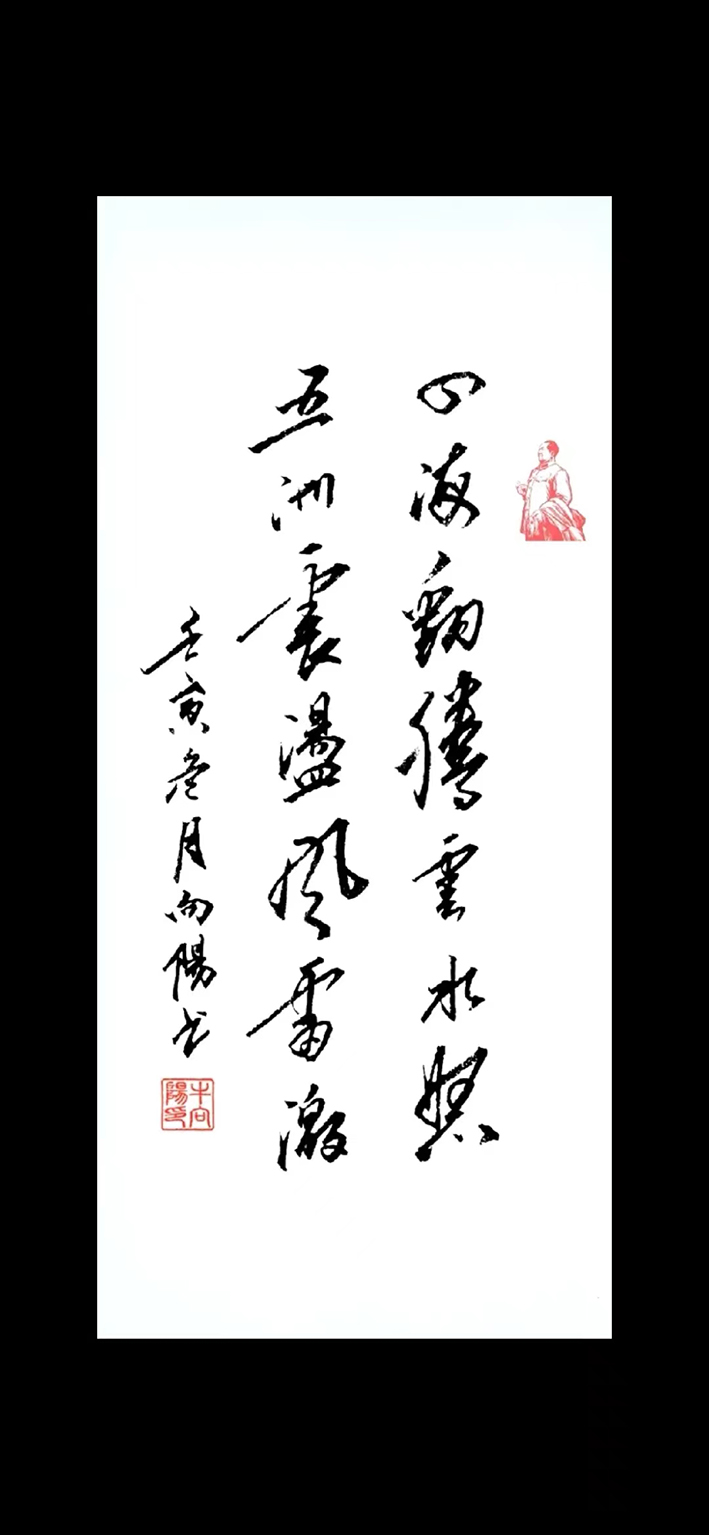 四海翻騰雲水怒
五洲震盪風雷激
壬寅壹月向陽书
牛向陽印